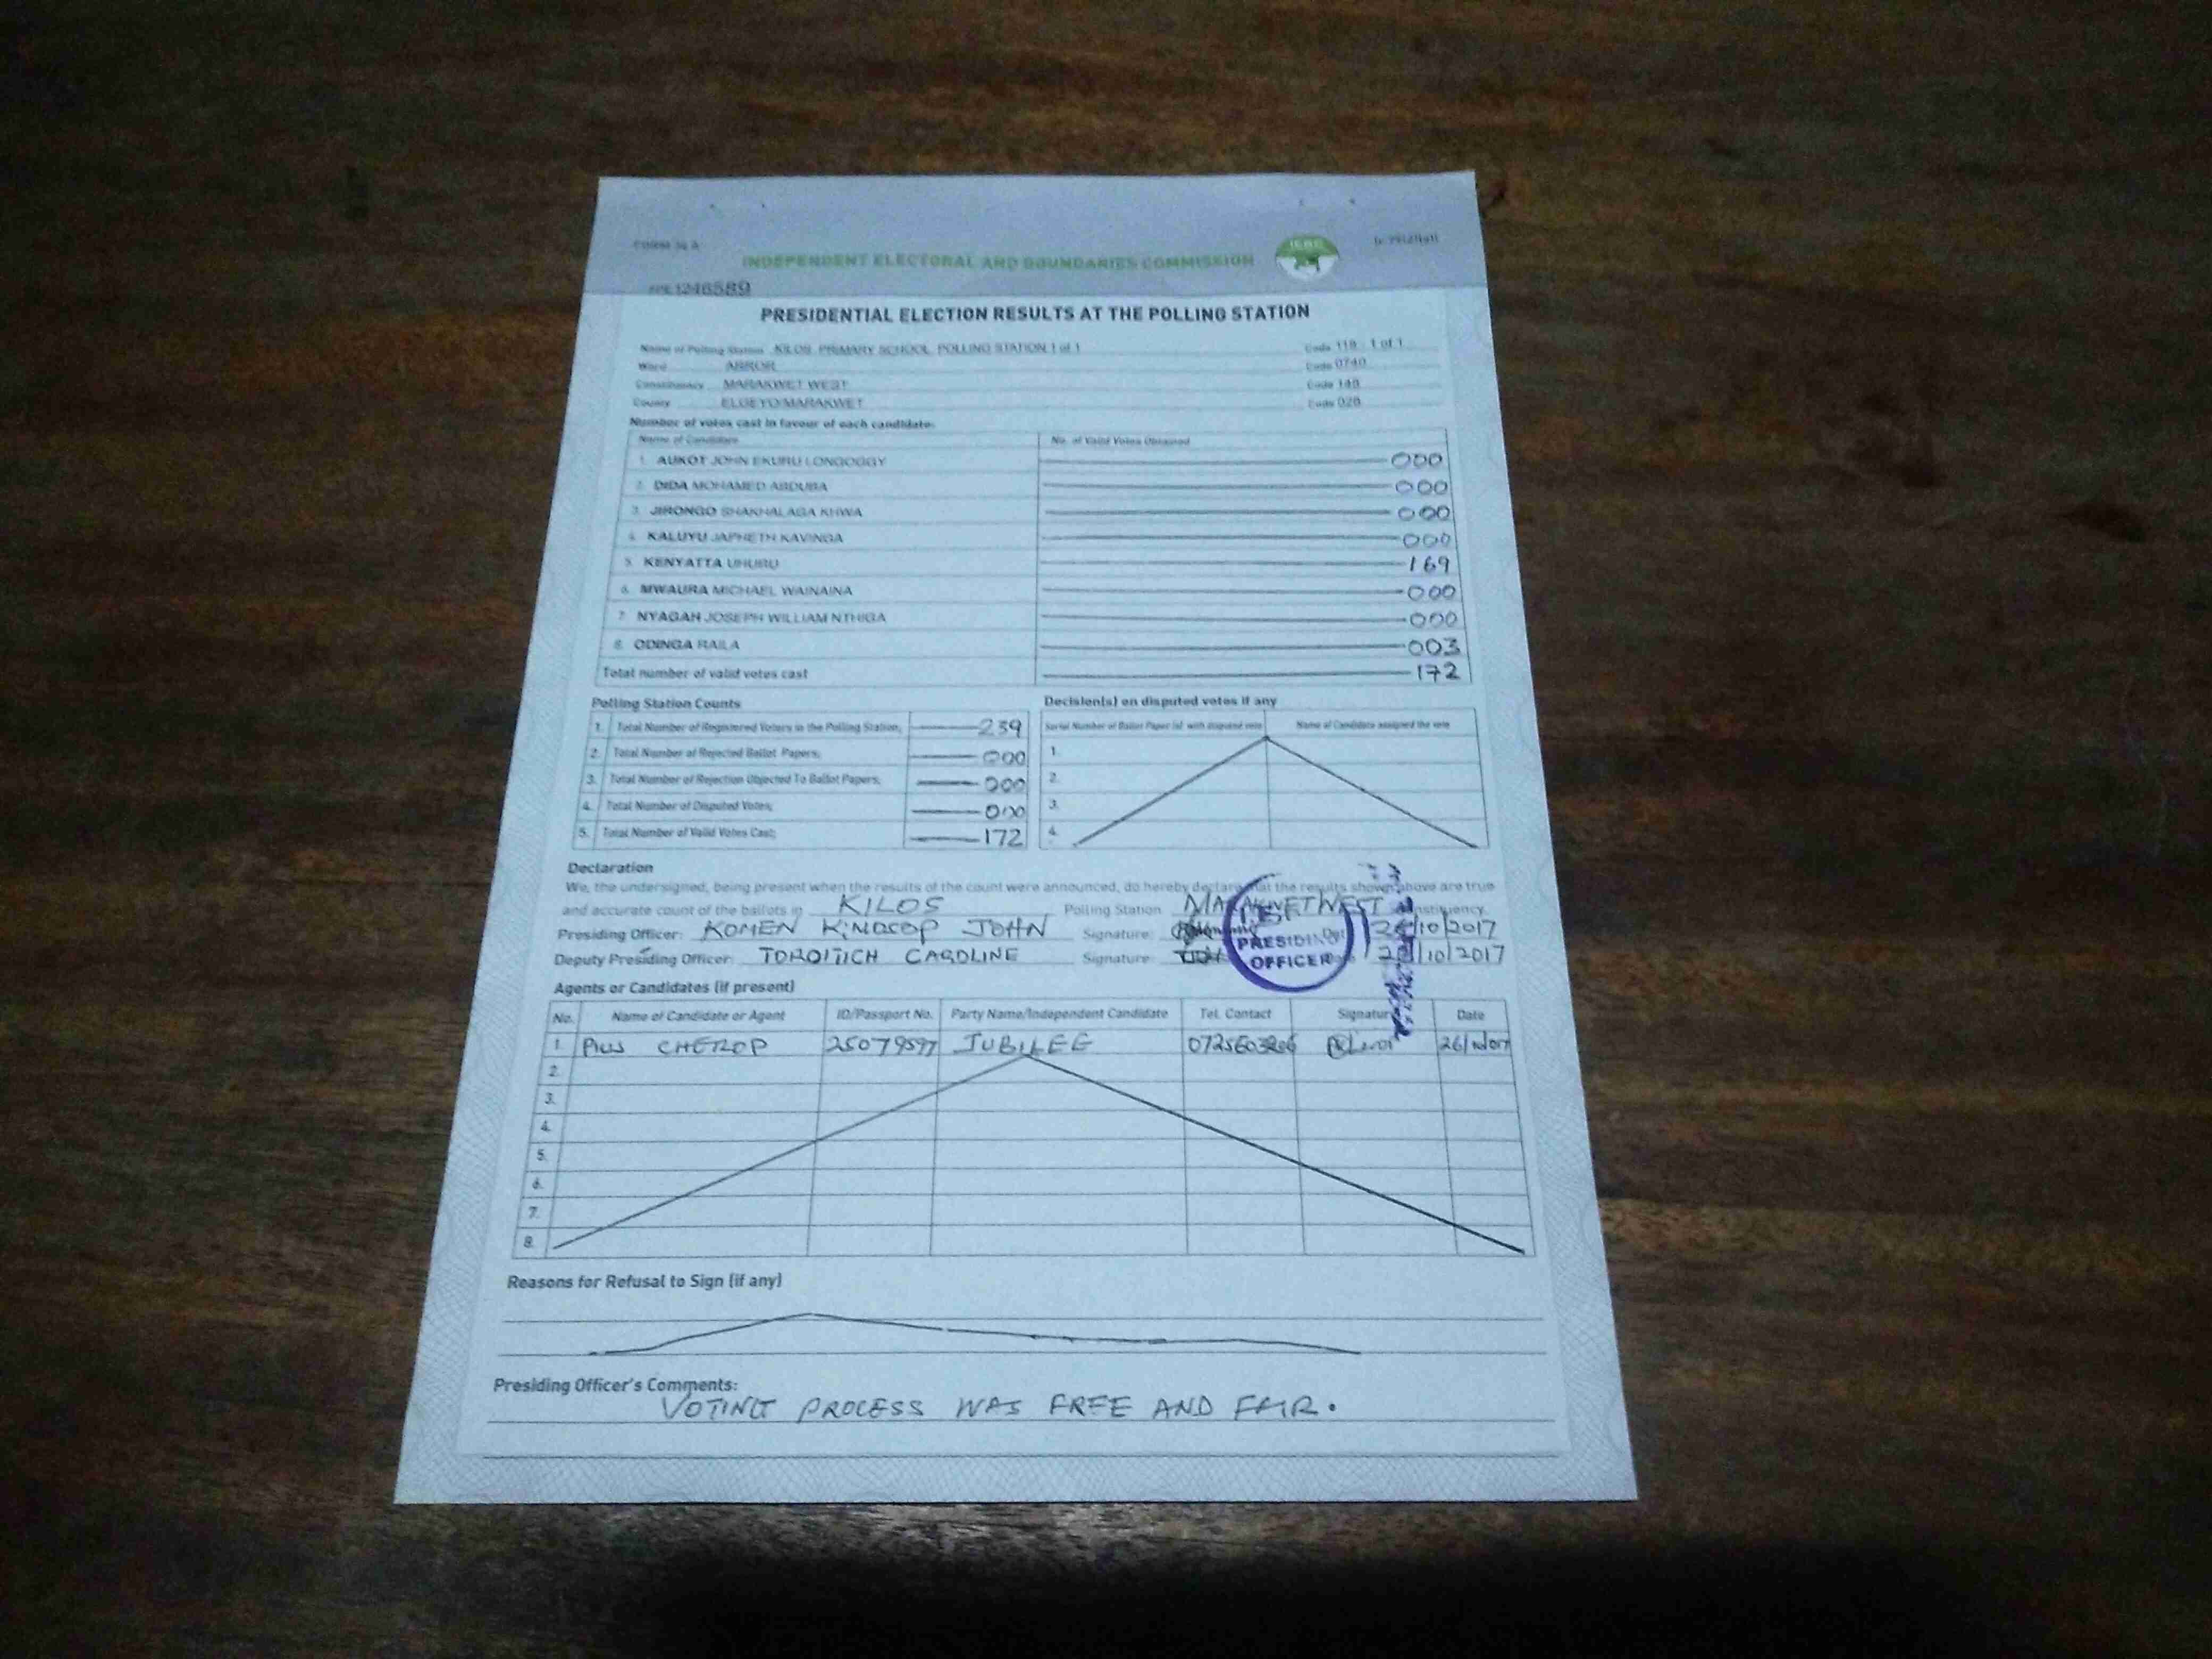 FORM 34 A
INDEPENDENT ELECTORAL AND BOUNDARIES COMMISSION
IEBC
1246589
PRESIDENTIAL ELECTION RESULTS AT THE POLLING STATION
Name of Polling Station KILOS PRIMARY SCHOOL POLLING STATION 1 of 1 Code 119 1 of 1
Ward ARROR Code 0740
Constituency MARAKWET WEST Code 149
County ELGEYO/MARAKWET Code 028
Number of votes cast in favour of each candidate:
Name of Candidate No. of Valid Votes Obtained
1. AUKOT JOHN EKURU LONGOGGY 000
2. DIDA MOHAMED ABDUBA 000
3. JIRONGO SHAKHALAGA KHWA 000
4. KALUYU JAPHETH KAVINGA 000
5. KENYATTA UHURU 169
6. MWAURA MICHAEL WAINAINA 000
7. NYAGAH JOSEPH WILLIAM NTHIGA 000
8. ODINGA RAILA 003
Total number of valid votes cast 172
Polling Station Counts
1. Total Number of Registered Voters in the Polling Station; 239
2. Total Number of Rejected Ballot Papers; 000
3. Total Number of Rejection Objected To Ballot Papers; 000
4. Total Number of Disputed Votes; 000
5. Total Number of Valid Votes Cast; 172
Decision(s) on disputed votes if any
Serial Number of Ballot Paper (s) with disputed vote Name of Candidate assigned the vote
1.
2.
3.
4.
Declaration
We, the undersigned, being present when the results of the count were announced, do hereby declare that the results shown above are true
and accurate count of the ballots in KILOS Polling Station MARAKWET WEST Constituency.
Presiding Officer: KOMEN KINDSOP JOHN Signature: Date 26/10/2017
Deputy Presiding Officer: TOROITICH CAROLINE Signature: 26/10/2017
PRESIDING
OFFICER
Agents or Candidates (if present)
No. Name of Candidate or Agent ID/Passport No. Party Name/Independent Candidate Tel. Contact Signature Date
1. PIUS CHEROP 25079597 JUBILEE 26/10/017
2.
3.
4.
5.
6.
7.
8.
Reasons for Refusal to Sign (if any)
Presiding Officer's Comments:
VOTING PROCESS WAS FREE AND FAIR.